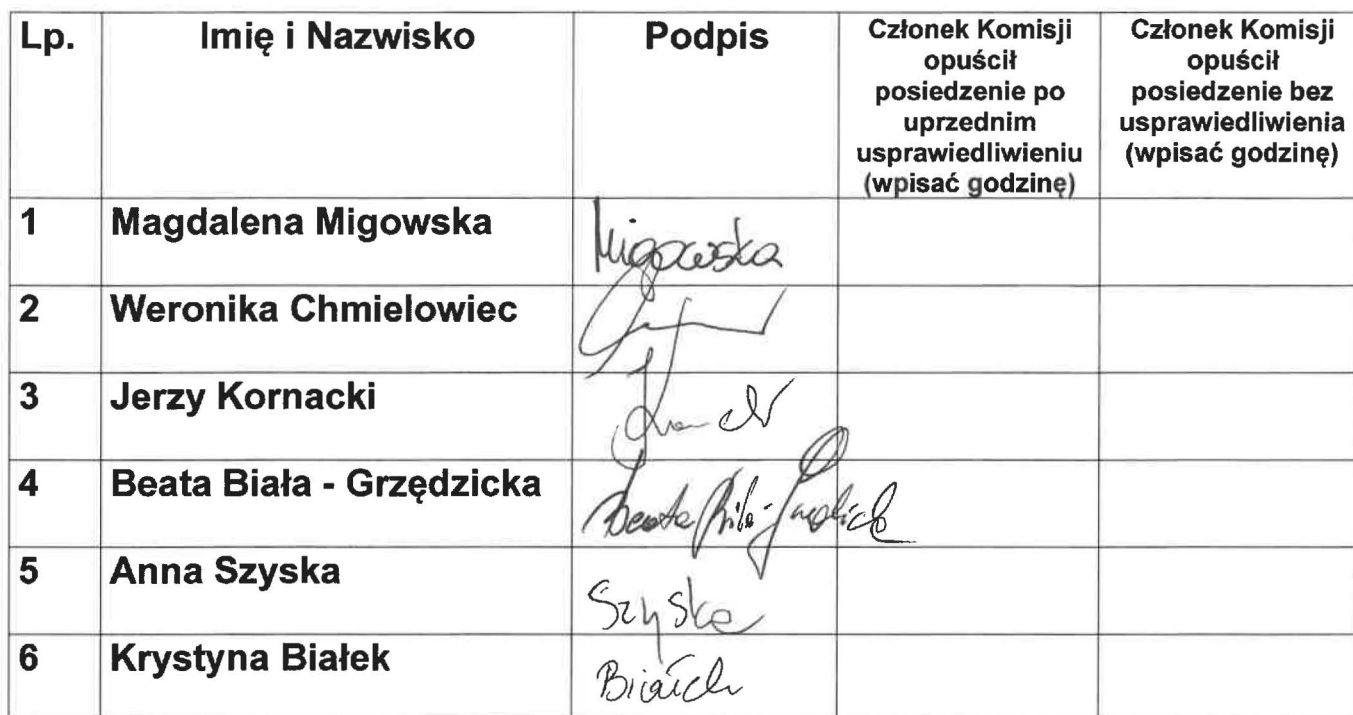 Lp. Imię i Nazwisko Podpis Członek Komisji opuścił posiedzenie po uprzednim usprawiedliwieniu (wpisać godzinę) Członek Komisji opuścił posiedzenie bez usprawiedliwienia (wpisać godzinę)
1 Magdalena Migowska Migowska
2 Weronika Chmielowiec
3 Jerzy Kornacki
4 Beata Biała - Grzędzicka Beata
5 Anna Szyska Szyska
6 Krystyna Białek